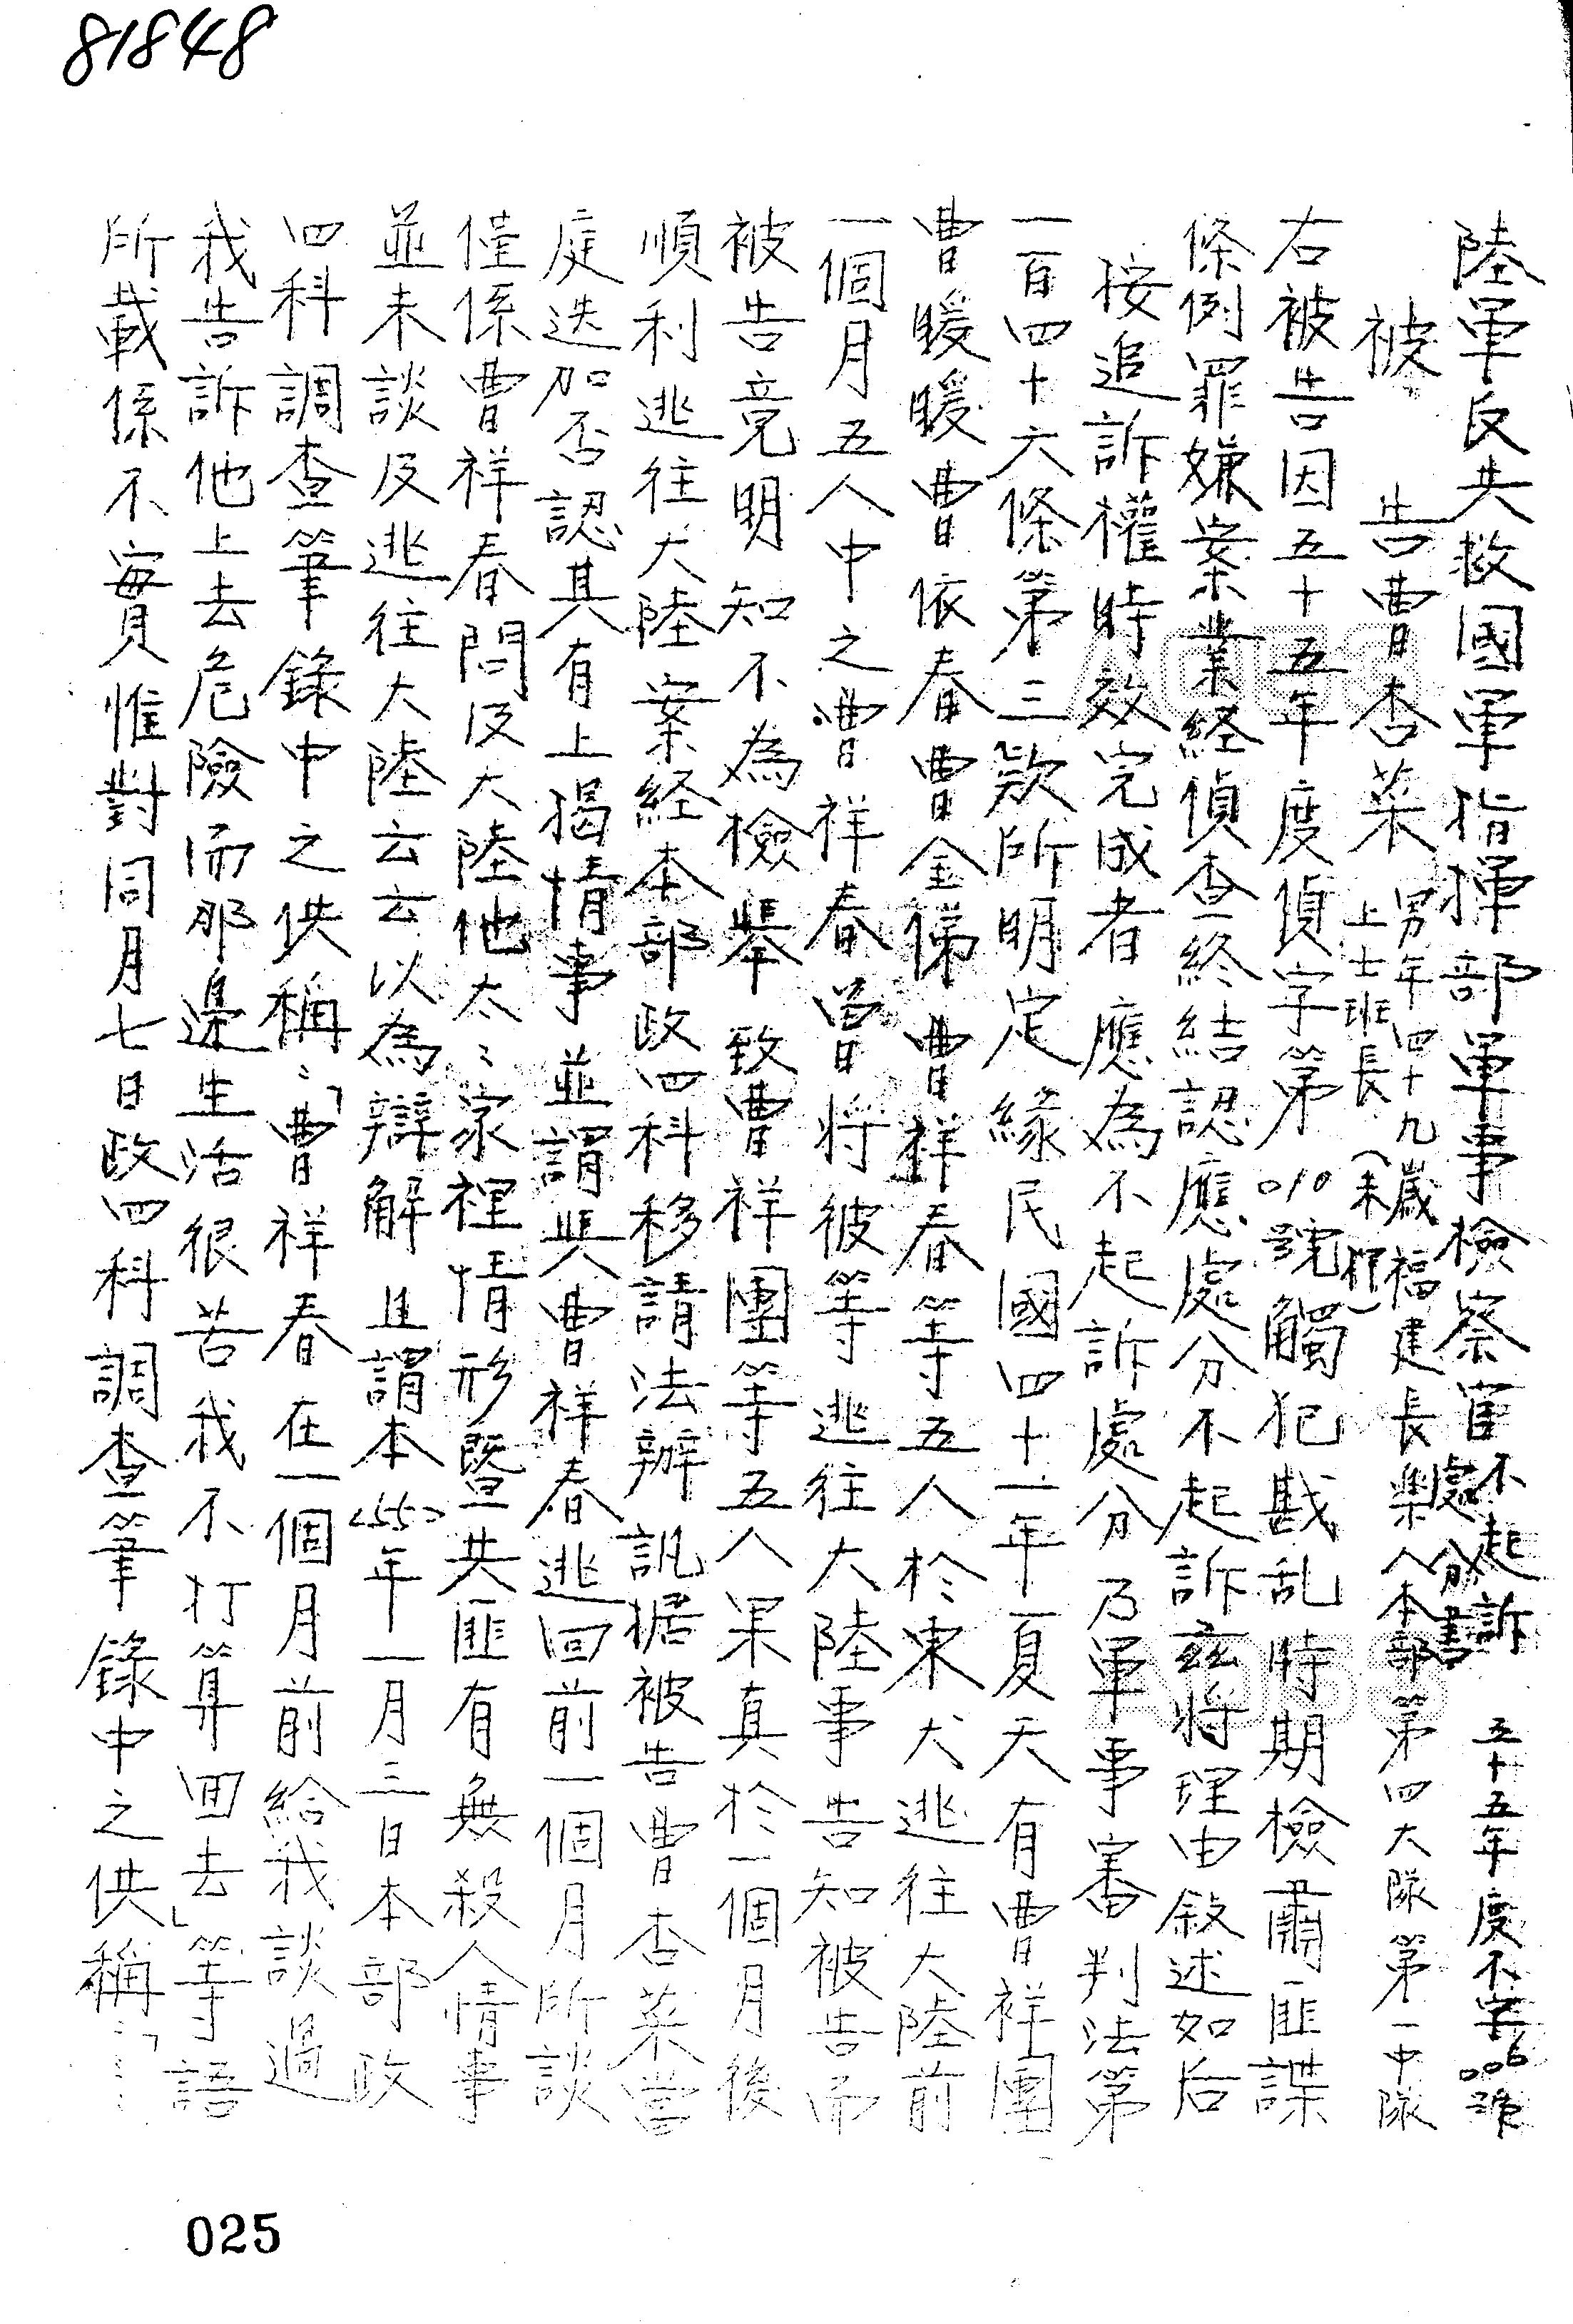 81848
陸軍反共救國軍指揮部軍事檢察官不起訴處分書 五十五年度不字006號
被 告 曹杏菜 男年四十九歲福建長樂人本部第四大隊第一中隊
上士班長（未押）
右被告因五十五年度偵字第010號觸犯戡乱時期檢肅匪諜
條例罪嫌案業経偵查終結認應處分不起訴茲將理由敍述如后
按追訴權時效完成者應為不起訴處分乃軍事審判法第
一百四十六條第三款所明定緣民國四十一年夏天有曹祥團
曹暖暖曹依春曹金俤曹祥春等五人於東犬逃往大陸前
一個月五人中之曹祥春曾将彼等逃往大陸事告知被告而
被告竟明知不為檢舉致曹祥團等五人果真於一個月後
順利逃往大陸案経本部政四科移請法辦訊据被告曹杏菜當
庭迭加否認其有上揭情事並謂與曹祥春逃回前一個月所談
僅係曹祥春問及大陸他太〻家裡情形暨共匪有無殺人情事
並未談及逃往大陸云云以為辯解且謂本〈55〉年一月三日本部政
四科調查筆錄中之供稱：「曹祥春在一個月前給我談過
我告訴他上去危險而那邊生活很苦我不打算回去」等語
所載係不實惟對同月七日政四科調查筆錄中之供稱：「
025